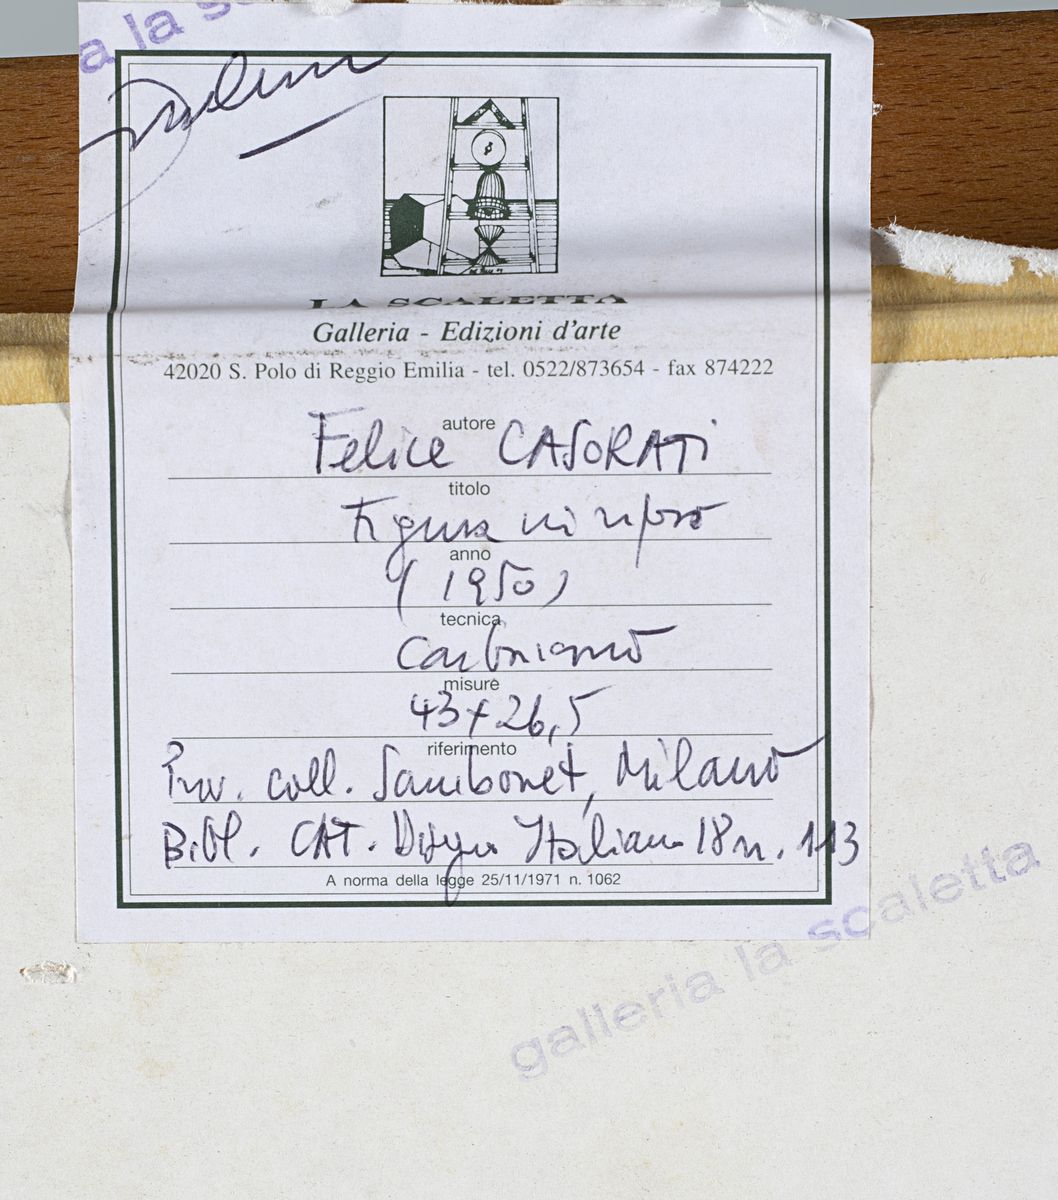 a la sc
LA SCALETTA
Galleria - Edizioni d'arte
42020 S. Polo di Reggio Emilia - tel. 0522/873654 - fax 874222
autore
Felice CASORATI
titolo
Figura in riposo
anno
(1950)
tecnica
Carboncino
misure
43x26,5
riferimento
Prov. coll. Sambonet, Milano
Bibl. CAT. Disegno Italiano 18 n. 113
A norma della legge 25/11/1971 n. 1062
galleria la scaletta